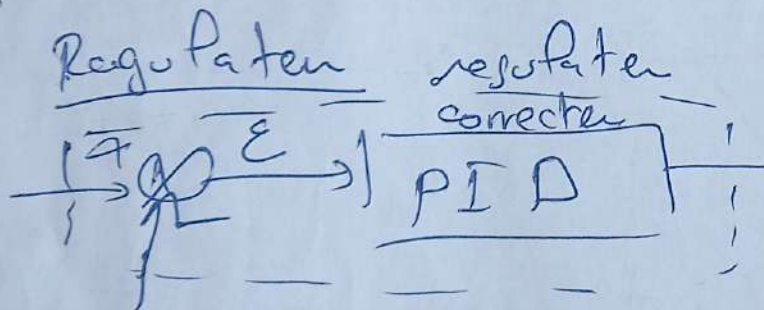 Regulateur regulateur
correcteur
+ ε PID
-